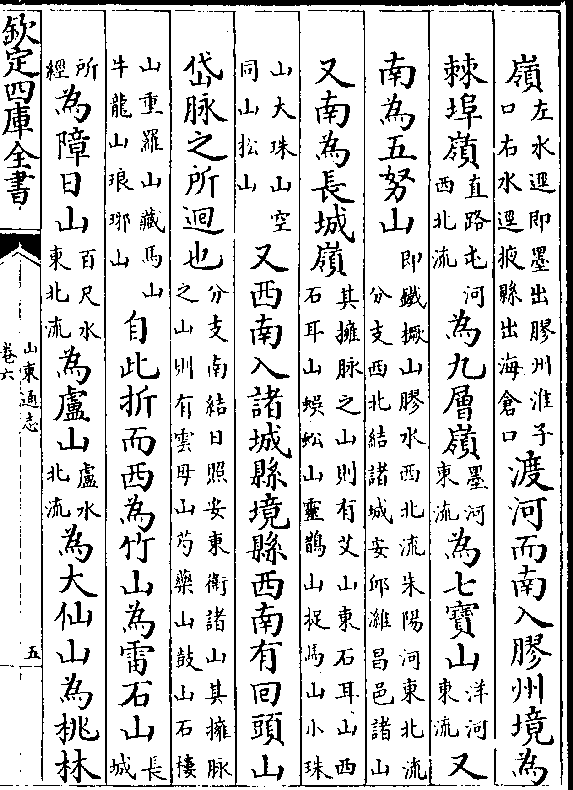 嶺左水逕即墨出膠州淮子口右水逕掖縣出海倉口渡河而南入膠州境為
棘埠嶺直路屯河西北流為九層嶺墨河東流為七寶山洋河東流又
南為五努山即鐵橛山膠水西北流朱陽河東北流分支西北結諸城安邱濰昌邑諸山
又南為長城嶺其擁脉之山則有艾山東石耳山西石耳山蜈蚣山靈鵲山捉馬山小珠
山大珠山空同山松山又西南入諸城縣境縣西南有回頭山
岱脉之所迴也分支南結日照安東衛諸山其擁脉之山則有雲母山芍藥山鼓山石樓
山重羅山藏馬山牛龍山琅琊山自此折而西為竹山為雷石山長城
所經為障日山百尺水東北流為盧山盧水北流為大仙山為桃林
欽定四庫全書
山東通志
卷六
五